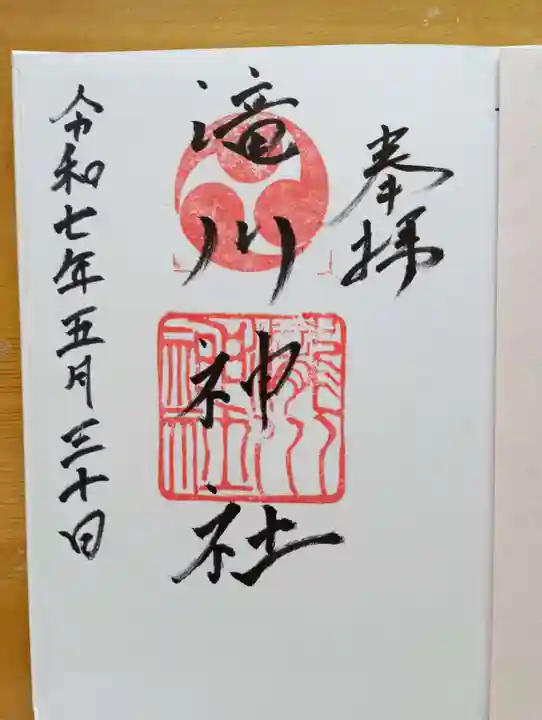 奉拝
滝川神社
令和七年五月三十日